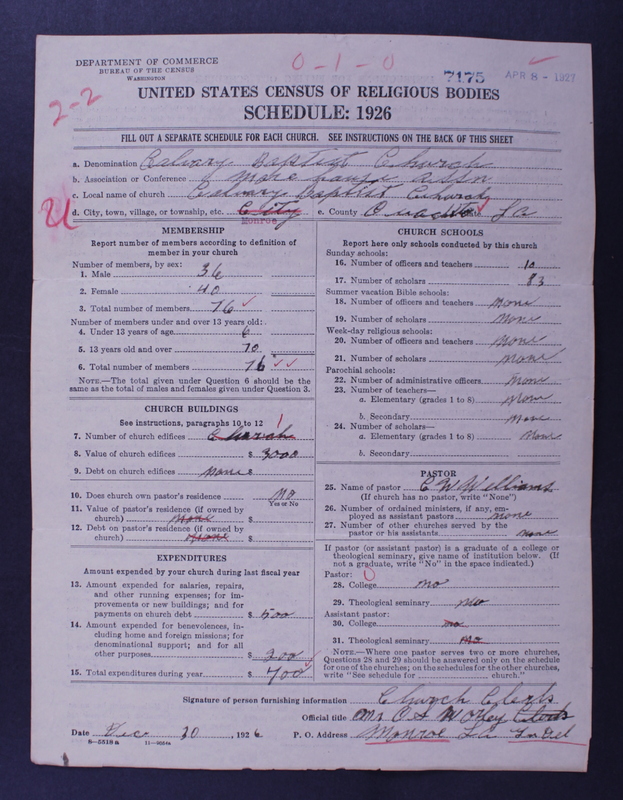 DEPARTMENT OF COMMERCE
BUREAU OF THE CENSUS
WASHINGTON
0-1-0
7175
APR 8 - 1927
2-2
UNITED STATES CENSUS OF RELIGIOUS BODIES
SCHEDULE: 1926
FILL OUT A SEPARATE SCHEDULE FOR EACH CHURCH. SEE INSTRUCTIONS ON THE BACK OF THIS SHEET
a. Denomination Calvary Baptist Church
b. Association or Conference Assn
c. Local name of church Calvary Baptist Church
U
d. City, town, village, or township, etc. City Monroe e. County La
MEMBERSHIP
Report number of members according to definition of
member in your church
Number of members, by sex:
1. Male 36
2. Female 40
3. Total number of members 76
Number of members under and over 13 years old:
4. Under 13 years of age 6
5. 13 years old and over 70
6. Total number of members 76
NOTE.—The total given under Question 6 should be
same as the total of males and females given under Question 3.
CHURCH BUILDINGS
See instructions, paragraphs 10 to 12
7. Number of church edifices Church 1
8. Value of church edifices $ 3000
9. Debt on church edifices none
10. Does church own pastor's residence no
Yes or No
11. Value of pastor's residence (if owned by
church) None $
12. Debt on pastor's residence (if owned by
church) None $
EXPENDITURES
Amount expended by your church during last fiscal year
13. Amount expended for salaries, repairs,
and other running expenses; for im-
provements or new buildings; and for
payments on church debt $ 500
14. Amount expended for benevolences, in-
cluding home and foreign missions; for
denominational support; and for all
other purposes $ 200
15. Total expenditures during year $ 700
CHURCH SCHOOLS
Report here only schools conducted by this church
Sunday schools:
16. Number of officers and teachers 10
17. Number of scholars 83
Summer vacation Bible schools:
18. Number of officers and teachers none
19. Number of scholars none
Week-day religious schools:
20. Number of officers and teachers none
21. Number of scholars none
Parochial schools:
22. Number of administrative officers none
23. Number of teachers—
a. Elementary (grades 1 to 8) none
b. Secondary none
24. Number of scholars—
a. Elementary (grades 1 to 8) none
b. Secondary
PASTOR
25. Name of pastor C W Williams
(If church has no pastor, write "None")
26. Number of ordained ministers, if any, em-
ployed as assistant pastors none
27. Number of other churches served by the
pastor or his assistants none
If pastor (or assistant pastor) is a graduate of a college or
theological seminary, give name of institution below. (If
not a graduate, write "No" in the space indicated.)
Pastor: 0
28. College no
29. Theological seminary no
Assistant pastor:
30. College no
31. Theological seminary no
NOTE.—Where one pastor serves two or more churches,
Questions 28 and 29 should be answered only on the schedule
for one of the churches; on the schedules for the other churches,
write "See schedule for church."
Signature of person furnishing information Church Clerk
Official title Mr O S Clerk
Date Dec 30, 1926 P. O. Address Monroe La
8-5518a 11-9024a